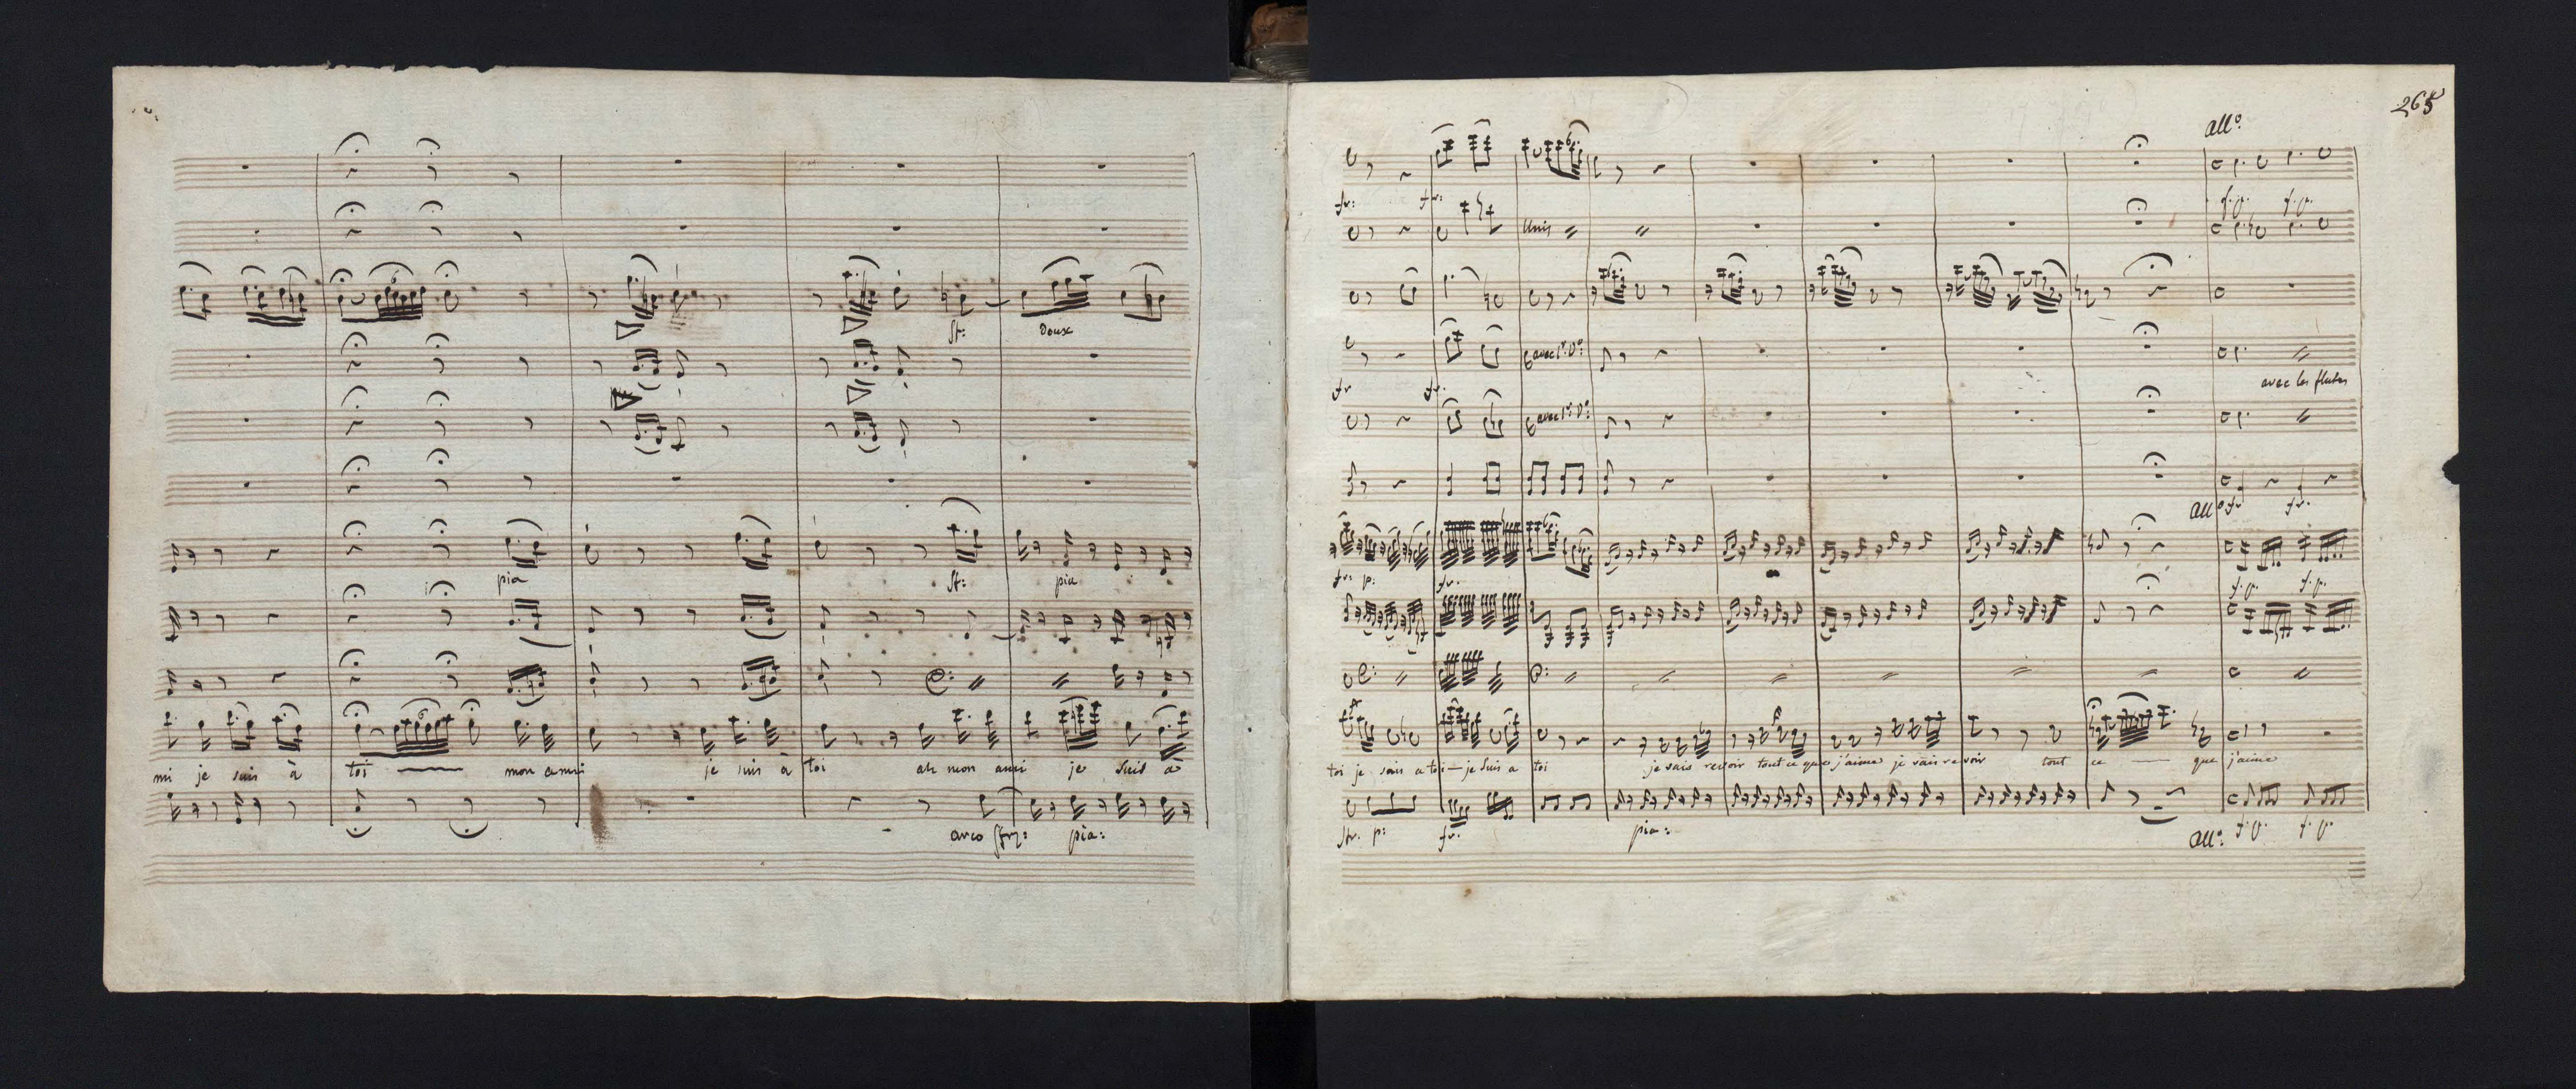 st: Doux
pia st: pia
mi je suis à toi mon ami je suis à toi ah mon ami je suis à
arco sfz: pia:
265
all°:
fr: fr: f.p. f.p.
Unis
avec 1er V°:
fr fr. avec les flutes
avec 1er V°:
all° fr fr.
fr: p: fr. f.p. f.p.
toi je suis a toi je suis a toi je vais revoir tout ce que j'aime je vais revoir tout ce que j'aime
p: fr. pia: all°: f.p. f.p.